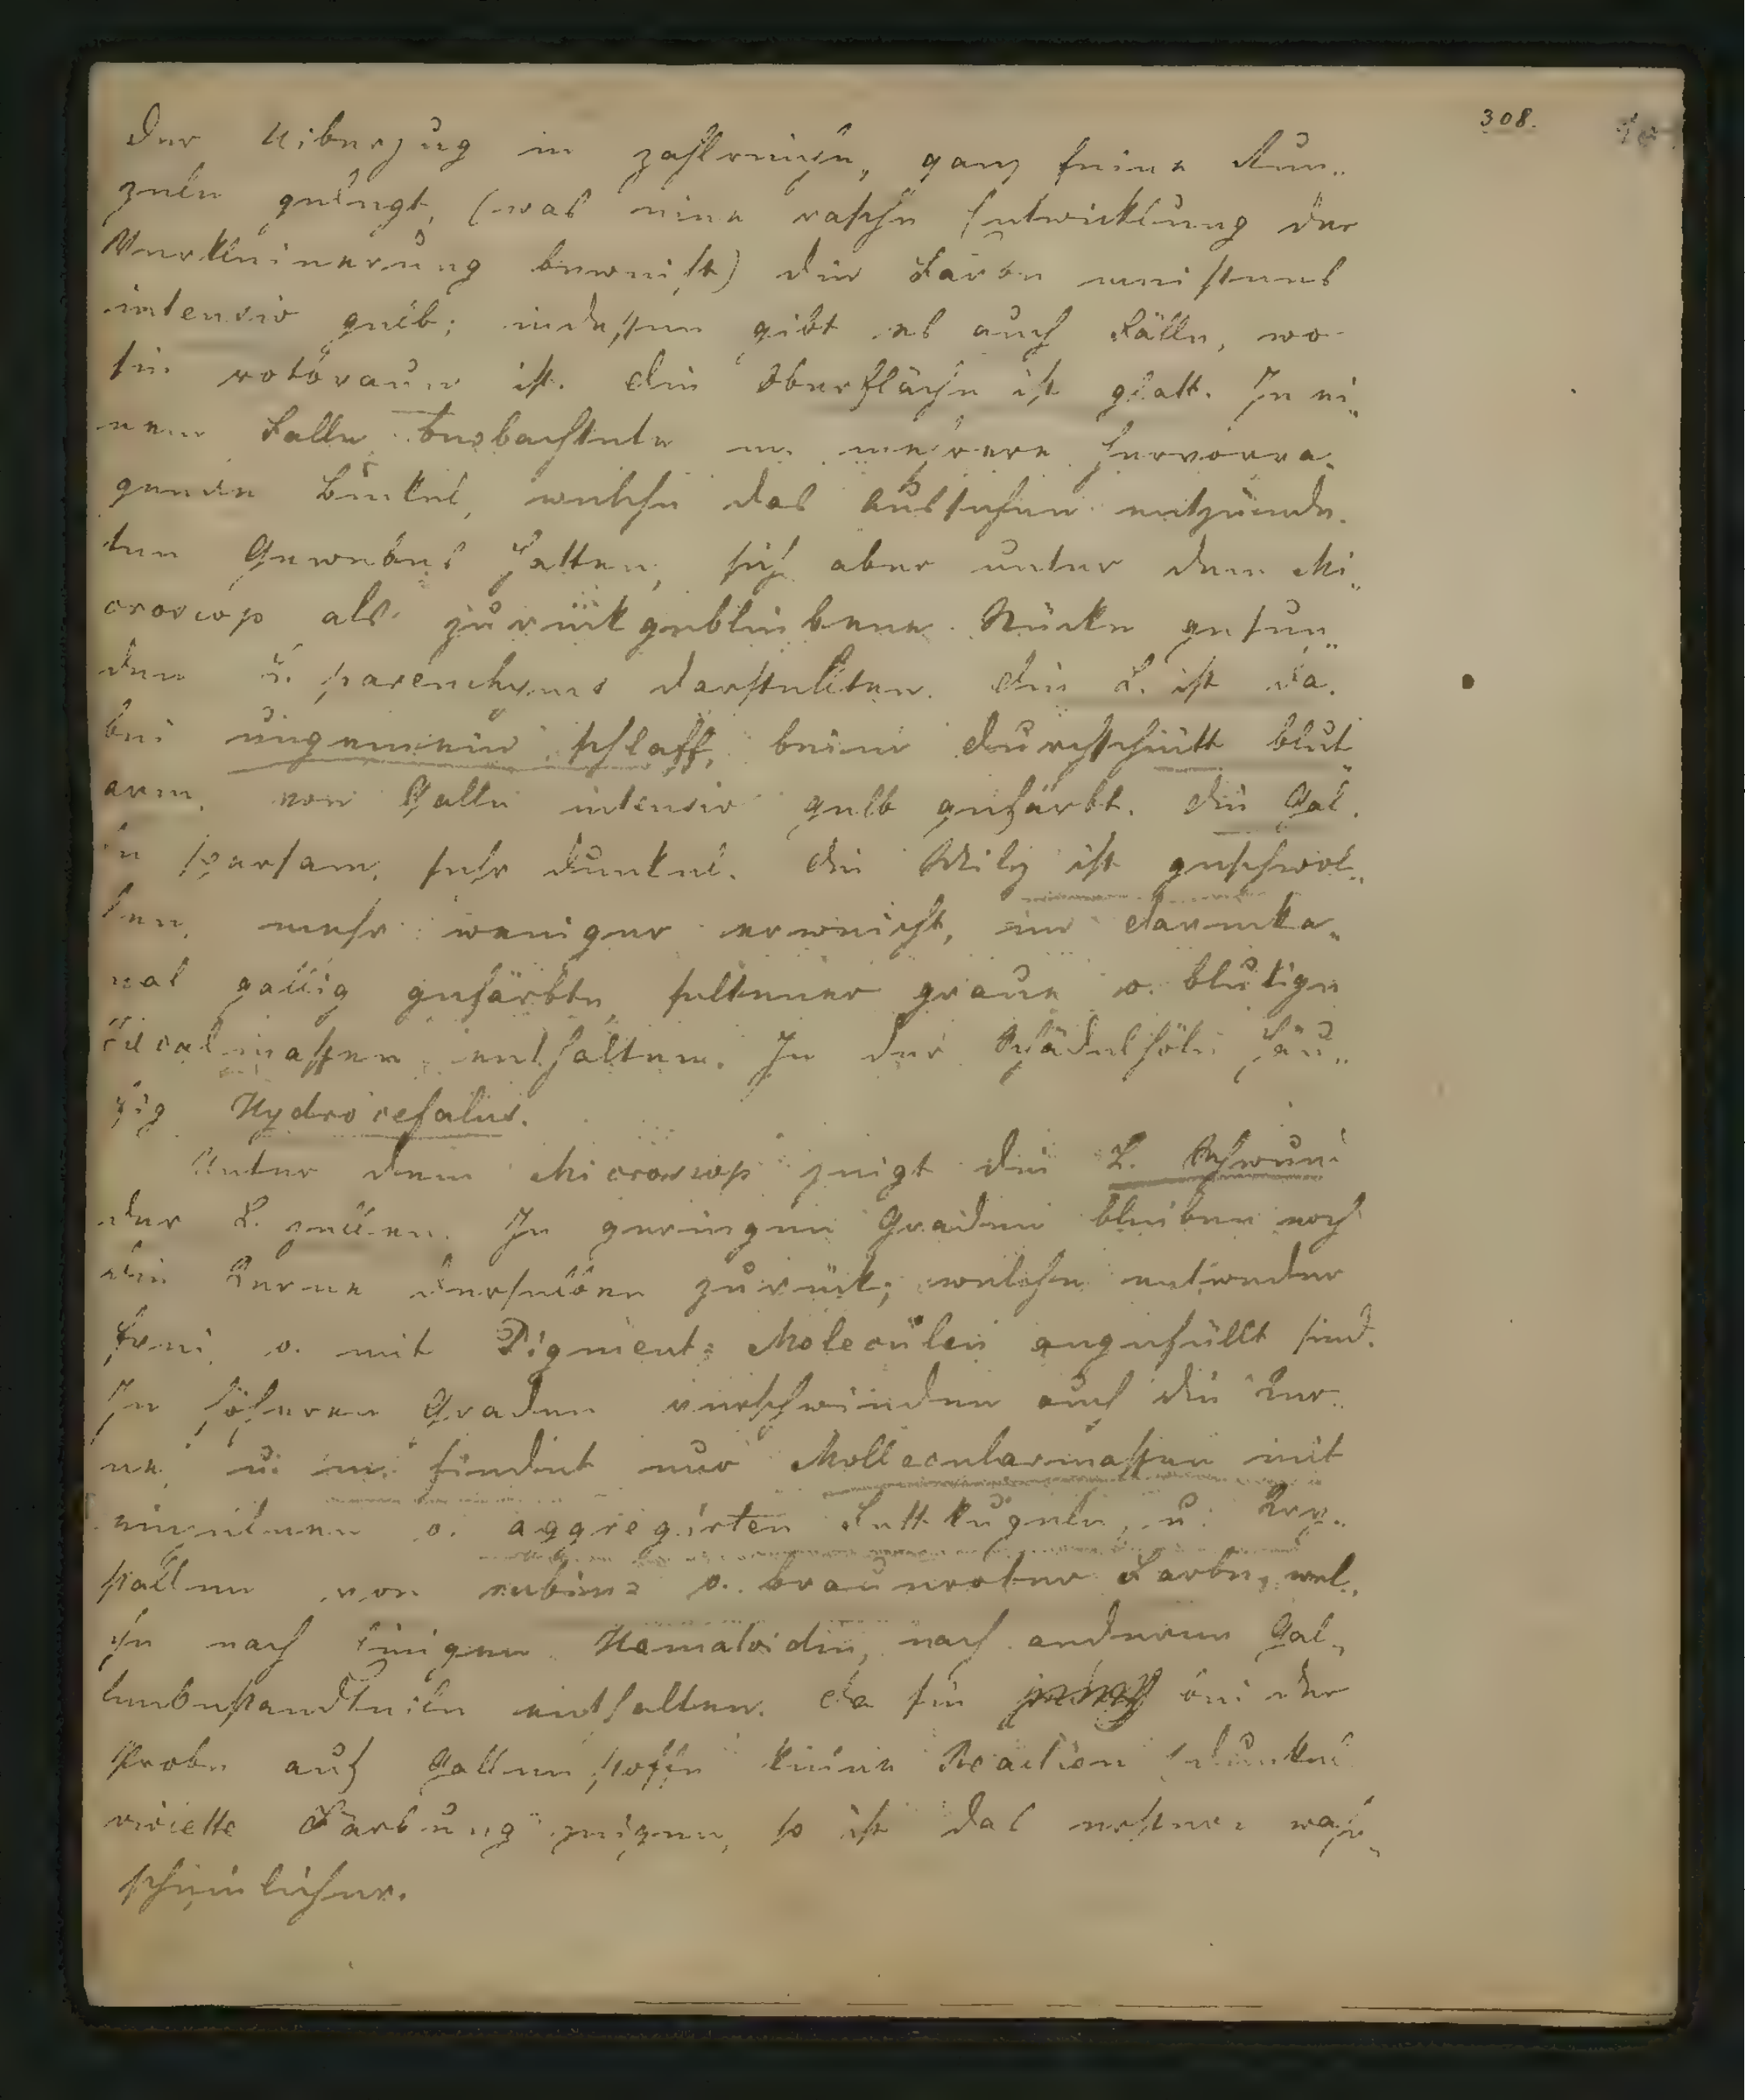 308.
der Uiberzug in zahlreiche, ganz feine Run„
zeln gelegt, (was eine rasche Entwicklung der
Verkleinerung beweist) die Farbe meistens
intensiv gelb; indessen gibt es auch Fälle, wo
sie rotbraun ist. Die Oberfläche ist glatt. In ei„
nem Falle beobachtete m. mehrere hervorra„
gende Bukel, welche das Aussehen entzünde„
ten Gewebes hatten, sich aber unter dem Mi„
croscop als zurükgebliebene Stücke gesun„
den L. parenchyms darstellten. Die L. ist da„
bei ungemein schlaff, beim Durchschnitt blut„
arm, von Galle intensiv gelb gefärbt. Die Gal„
le sparsam, sehr dunkel. Die Milz ist geschwol„
len, mehr weniger erweicht, im Darmka„
nal gallig gefärbte, seltener graue o. blutige
Fäcalmassen enthalten. In der Schädelhöle häu„
fig Hydrocefalus.
Unter dem Microscop zeigt die L. Schwund
der L. zellen. In geringen Graden bleiben noch
die Kerne derselben zurük; welche entweder
frei o. mit Pigment= Molecülen angefüllt sind.
In höheren Graden verschwinden auch die Ker„
ne u. m. findet nur Mollecularmassen mit
einzelnen o. aggregirten Fettkugeln, u. Kry„
stallen von rubin= o. braunroter Farbe, wel„
che nach Einigen Hematoidin, nach anderen Gal„
lenbestandteile enthalten. Da sie bei der
Probe auf Gallenstoffe keine Reaction (dunkel
violette Färbung zeigen, so ist das erstere wahr„
scheinlicher.